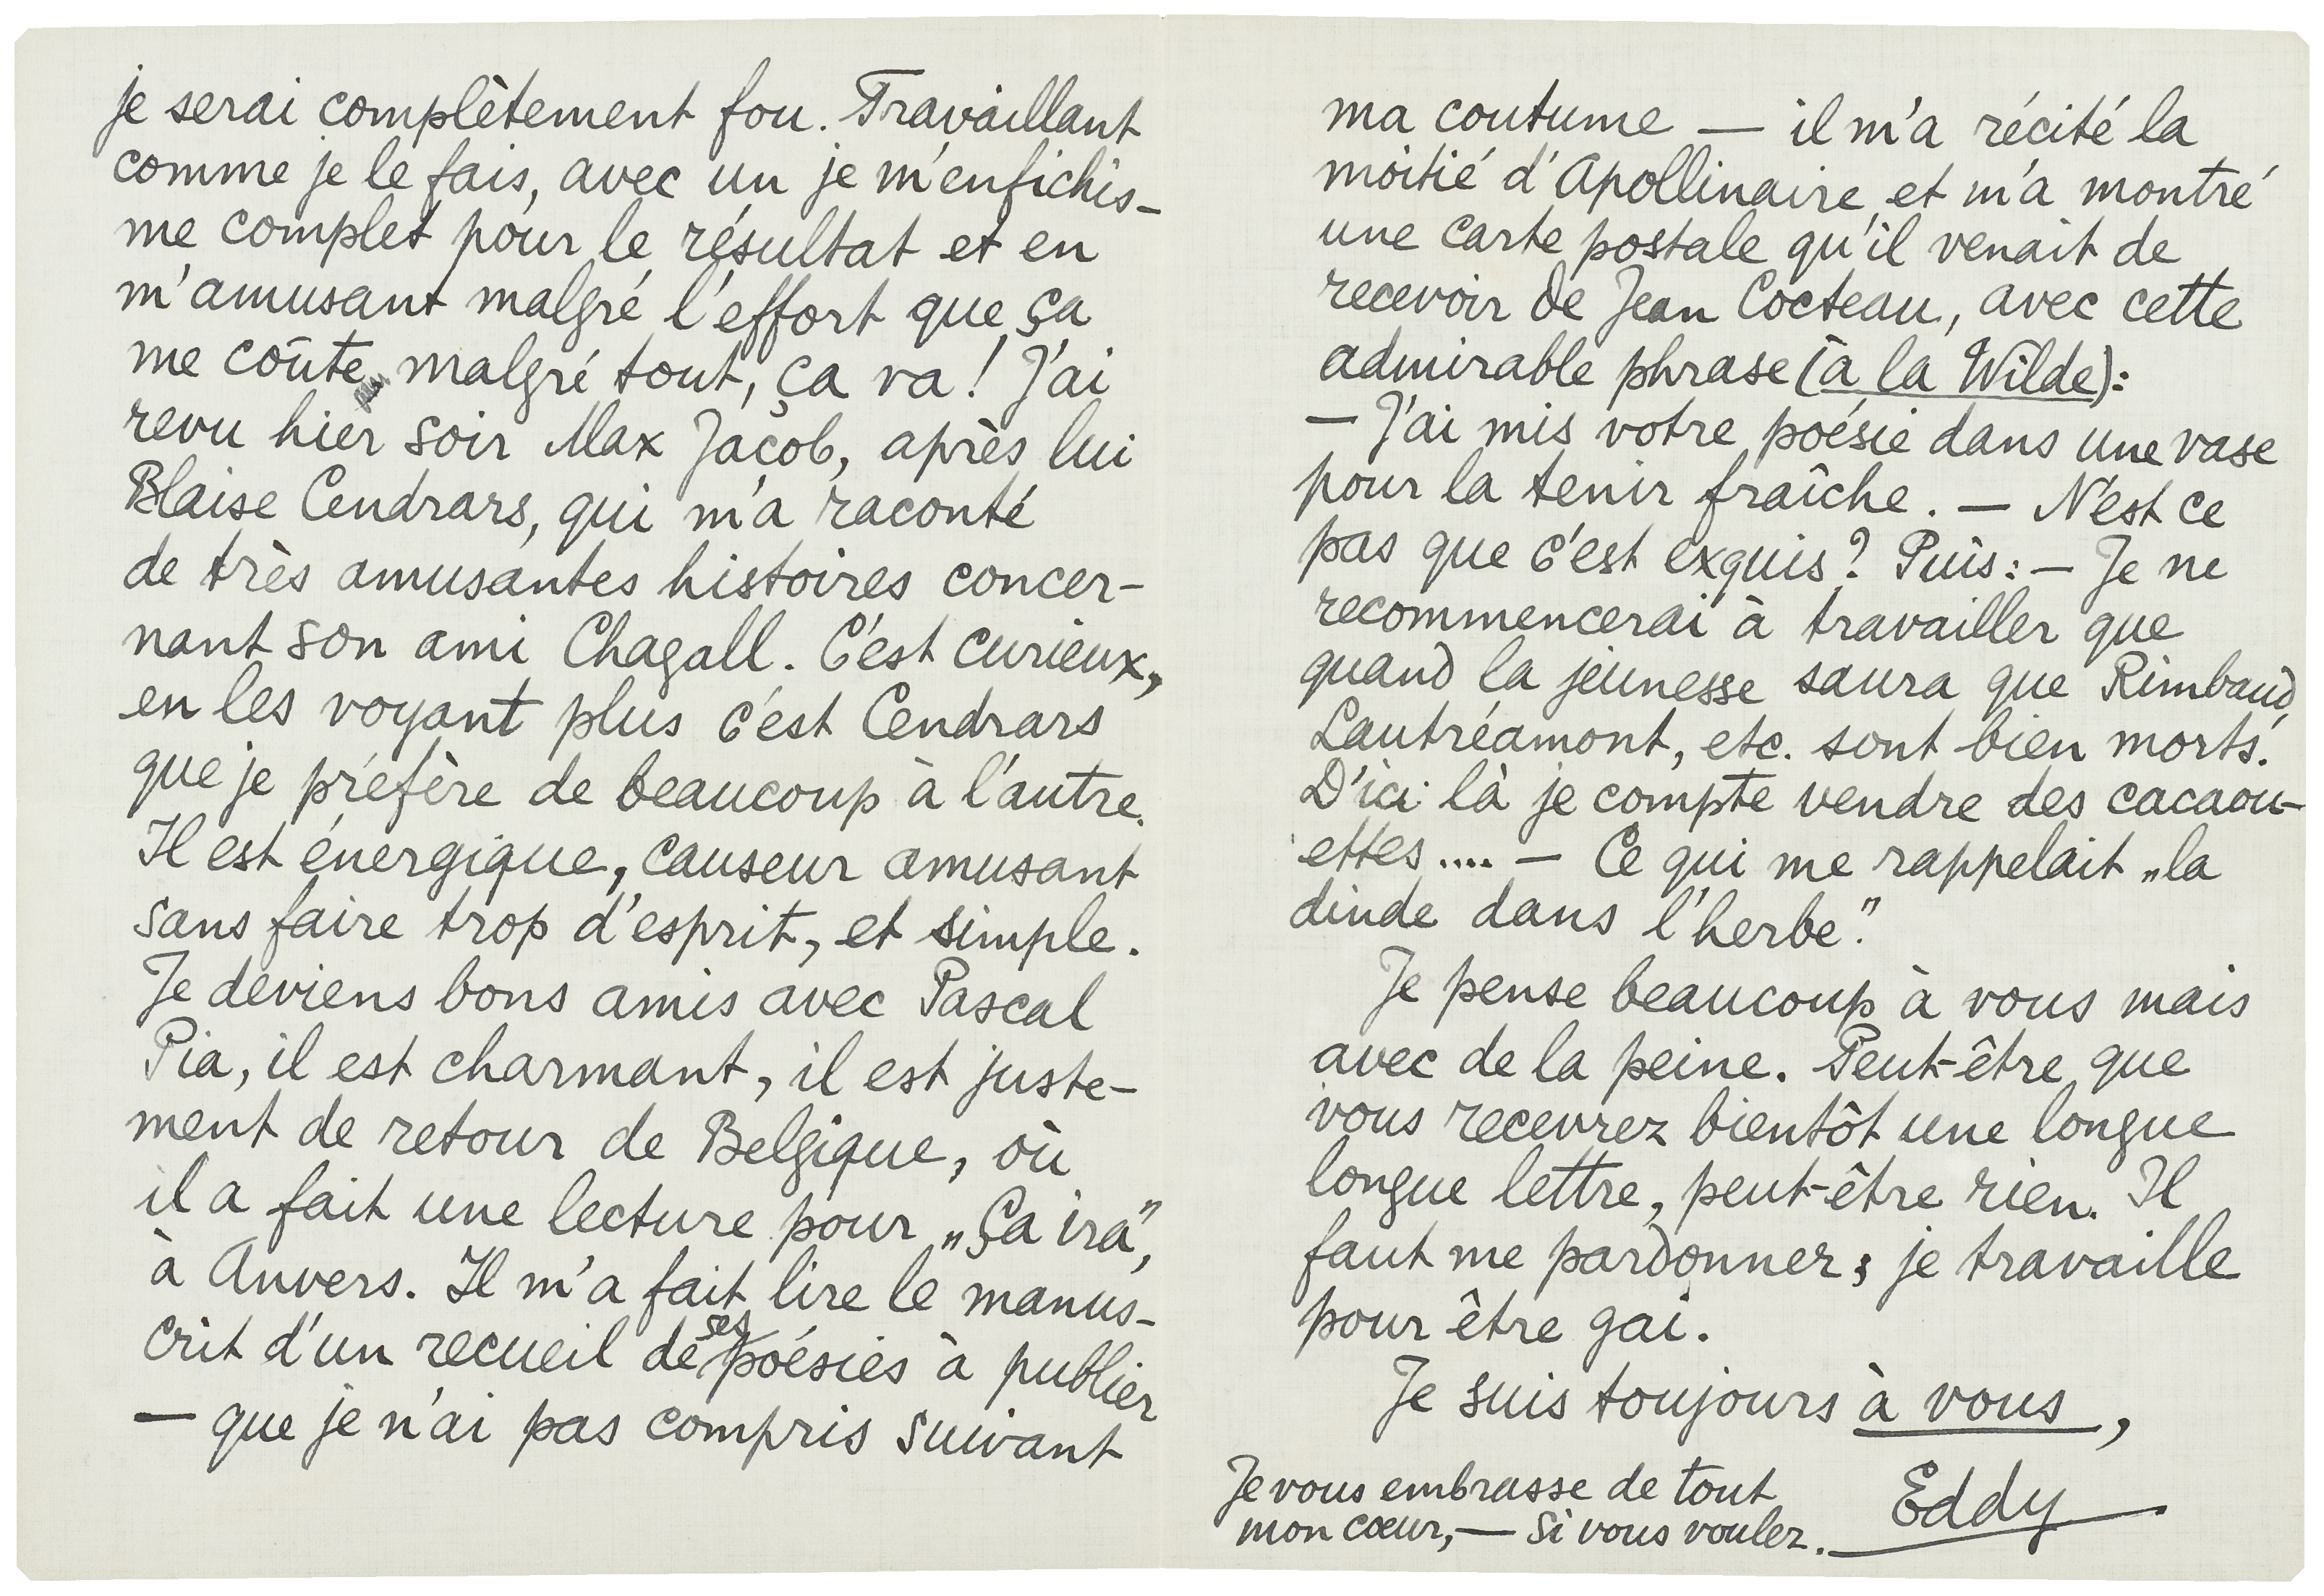 je serai complètement fou. Travaillant
comme je le fais, avec un je m'enfichis-
me complet pour le résultat et en
m'amusant malgré l'effort que ça
me coûte, malgré tout, ça va! J'ai
revu hier soir Max Jacob, après lui
Blaise Cendrars, qui m'a raconté
de très amusantes histoires concer-
nant son ami Chagall. C'est curieux,
en les voyant plus c'est Cendrars
que je préfère de beaucoup à l'autre.
Il est énergique, causeur amusant
sans faire trop d'esprit, et simple.
Je deviens bons amis avec Pascal
Pia, il est charmant, il est juste-
ment de retour de Belgique, où
il a fait une lecture pour „Ça ira",
à Anvers. Il m'a fait lire le manus-
crit d'un recueil de ses poésies à publier
— que je n'ai pas compris suivant
ma coutume — il m'a récité la
moitié d'Apollinaire et m'a montré
une carte postale qu'il venait de
recevoir de Jean Cocteau, avec cette
admirable phrase (à la Wilde):
— J'ai mis votre poésie dans une vase
pour la tenir fraîche. — N'est ce
pas que c'est exquis? Puis: — Je ne
recommencerai à travailler que
quand la jeunesse saura que Rimbaud,
Lautréamont, etc. sont bien morts.
D'ici là je compte vendre des cacaou-
ettes.... — Ce qui me rappelait „la
dinde dans l'herbe".
Je pense beaucoup à vous mais
avec de la peine. Peut-être que
vous recevrez bientôt une longue
longue lettre, peut-être rien. Il
faut me pardonner; je travaille
pour être gai.
Je suis toujours à vous,
Eddy
Je vous embrasse de tout
mon cœur, — si vous voulez.